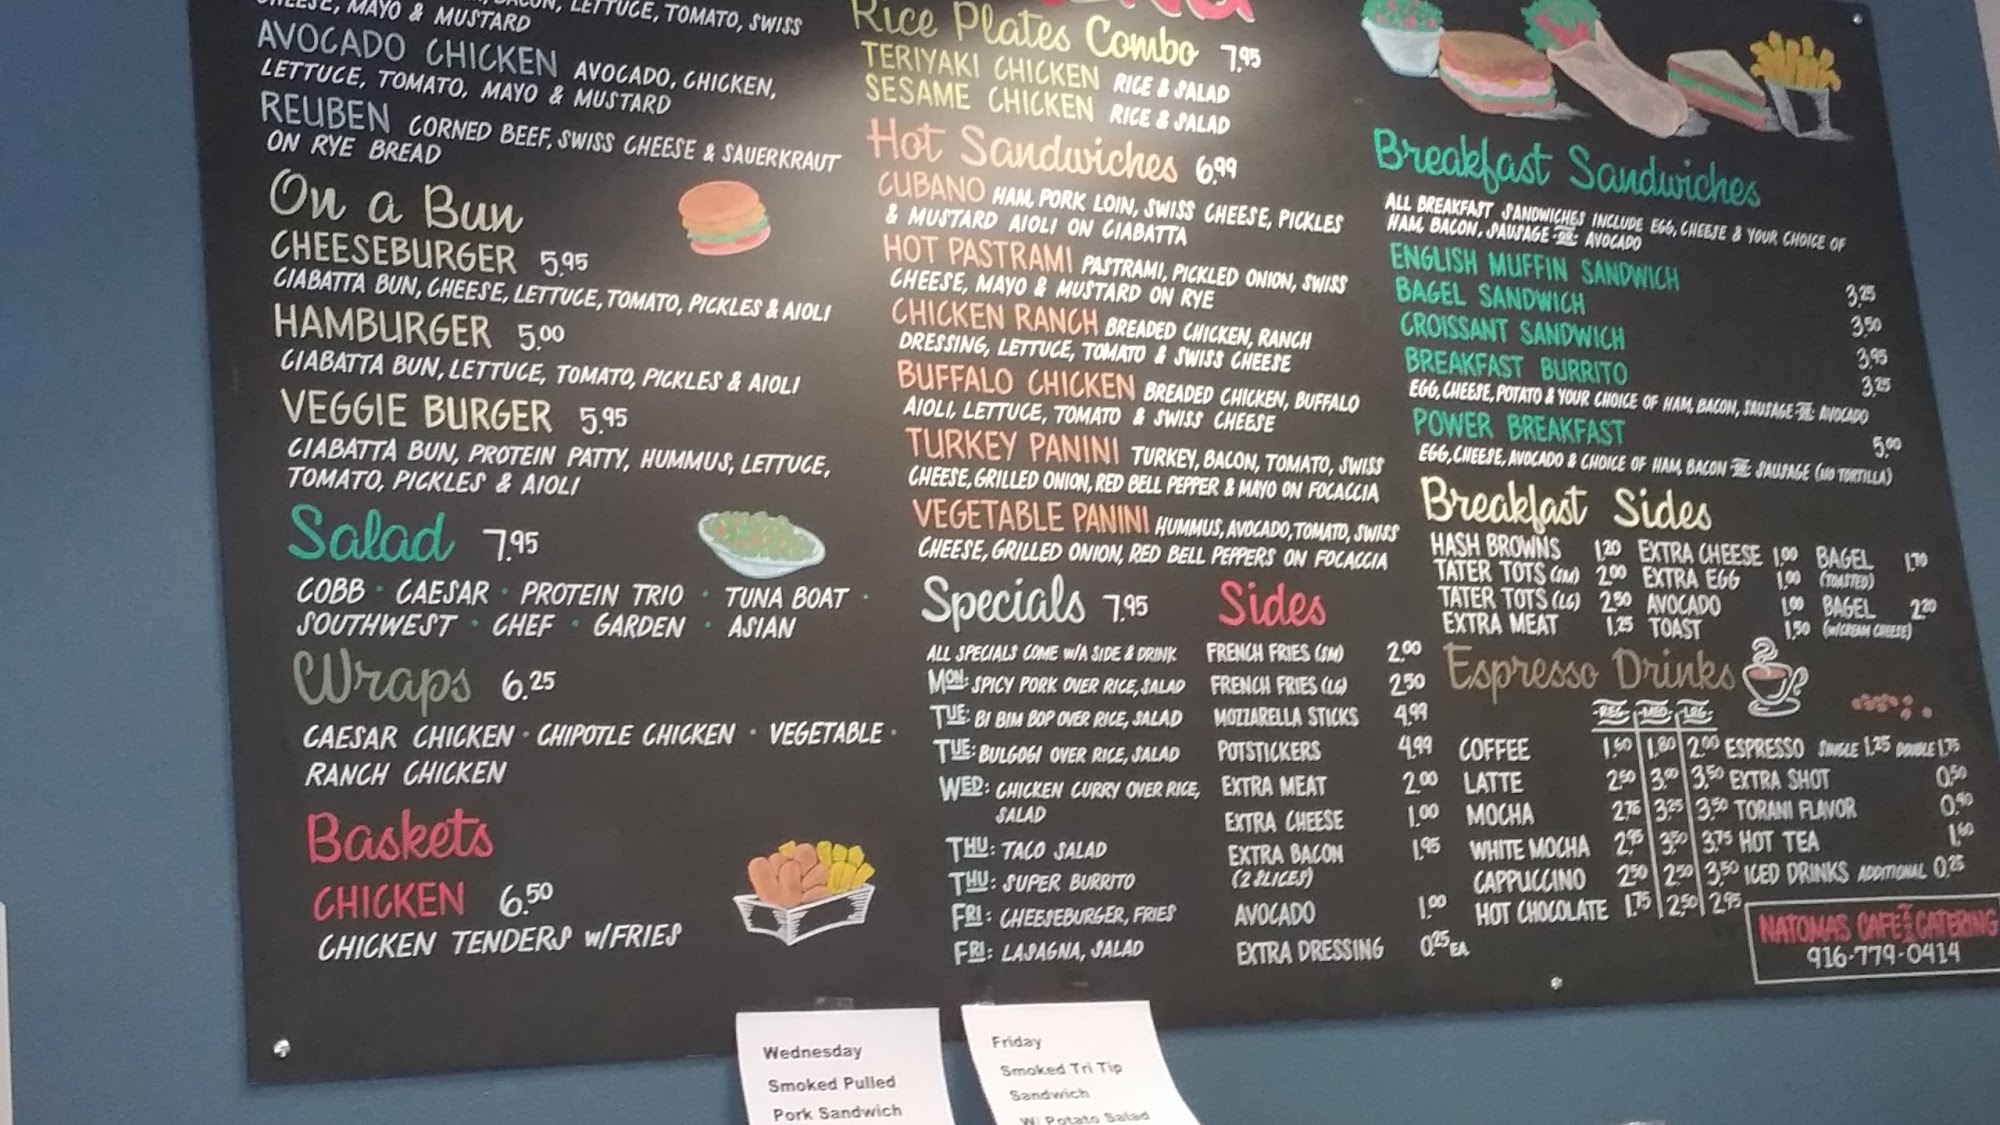 CHEESE, MAYO & MUSTARD
BACON, LETTUCE, TOMATO, SWISS
AVOCADO CHICKEN AVOCADO, CHICKEN,
LETTUCE, TOMATO, MAYO & MUSTARD
REUBEN CORNED BEEF, SWISS CHEESE & SAUERKRAUT
ON RYE BREAD
On a Bun
CHEESEBURGER 5.95
CIABATTA BUN, CHEESE, LETTUCE, TOMATO, PICKLES & AIOLI
HAMBURGER 5.00
CIABATTA BUN, LETTUCE, TOMATO, PICKLES & AIOLI
VEGGIE BURGER 5.95
CIABATTA BUN, PROTEIN PATTY, HUMMUS, LETTUCE,
TOMATO, PICKLES & AIOLI
Salad 7.95
COBB · CAESAR · PROTEIN TRIO · TUNA BOAT ·
SOUTHWEST · CHEF · GARDEN · ASIAN
Wraps 6.25
CAESAR CHICKEN · CHIPOTLE CHICKEN · VEGETABLE ·
RANCH CHICKEN
Baskets
CHICKEN 6.50
CHICKEN TENDERS w/FRIES
Rice Plates Combo 7.95
TERIYAKI CHICKEN RICE & SALAD
SESAME CHICKEN RICE & SALAD
Hot Sandwiches 6.99
CUBANO HAM, PORK LOIN, SWISS CHEESE, PICKLES
& MUSTARD AIOLI ON CIABATTA
HOT PASTRAMI PASTRAMI, PICKLED ONION, SWISS
CHEESE, MAYO & MUSTARD ON RYE
CHICKEN RANCH BREADED CHICKEN, RANCH
DRESSING, LETTUCE, TOMATO & SWISS CHEESE
BUFFALO CHICKEN BREADED CHICKEN, BUFFALO
AIOLI, LETTUCE, TOMATO & SWISS CHEESE
TURKEY PANINI TURKEY, BACON, TOMATO, SWISS
CHEESE, GRILLED ONION, RED BELL PEPPER & MAYO ON FOCACCIA
VEGETABLE PANINI HUMMUS, AVOCADO, TOMATO, SWISS
CHEESE, GRILLED ONION, RED BELL PEPPERS ON FOCACCIA
Specials 7.95
ALL SPECIALS COME W/A SIDE & DRINK
MON: SPICY PORK OVER RICE, SALAD
TUE: BI BIM BOP OVER RICE, SALAD
TUE: BULGOGI OVER RICE, SALAD
WED: CHICKEN CURRY OVER RICE,
SALAD
THU: TACO SALAD
THU: SUPER BURRITO
FRI: CHEESEBURGER, FRIES
FRI: LASAGNA, SALAD
Sides
FRENCH FRIES (SM) 2.00
FRENCH FRIES (LG) 2.50
MOZZARELLA STICKS 4.99
POTSTICKERS 4.99
EXTRA MEAT 2.00
EXTRA CHEESE 1.00
EXTRA BACON 1.95
(2 SLICES)
AVOCADO 1.00
EXTRA DRESSING 0.25 EA
Breakfast Sandwiches
ALL BREAKFAST SANDWICHES INCLUDE EGG, CHEESE & YOUR CHOICE OF
HAM, BACON, SAUSAGE -OR- AVOCADO
ENGLISH MUFFIN SANDWICH 3.25
BAGEL SANDWICH 3.50
CROISSANT SANDWICH 3.95
BREAKFAST BURRITO 3.25
EGG, CHEESE, POTATO & YOUR CHOICE OF HAM, BACON, SAUSAGE OR AVOCADO
POWER BREAKFAST 5.00
EGG, CHEESE, AVOCADO & CHOICE OF HAM, BACON OR SAUSAGE (NO TORTILLA)
Breakfast Sides
HASH BROWNS 1.20 EXTRA CHEESE 1.00 BAGEL 1.70
TATER TOTS (SM) 2.00 EXTRA EGG 1.00 (TOASTED)
TATER TOTS (LG) 2.50 AVOCADO 1.00 BAGEL 2.20
EXTRA MEAT 1.25 TOAST 1.50 (W/CREAM CHEESE)
Espresso Drinks
-REG- -MED- -LRG-
COFFEE 1.60 1.80 2.00 ESPRESSO SINGLE 1.25 DOUBLE 1.75
LATTE 2.50 3.00 3.50 EXTRA SHOT 0.50
MOCHA 2.75 3.25 3.50 TORANI FLAVOR 0.40
WHITE MOCHA 2.95 3.50 3.75 HOT TEA 1.60
CAPPUCCINO 2.50 2.50 3.50 ICED DRINKS ADDITIONAL 0.25
HOT CHOCOLATE 1.75 2.50 2.95
NATOMAS CAFE CATERING
916-779-0414
Wednesday
Smoked Pulled
Pork Sandwich
Friday
Smoked Tri Tip
Sandwich
W/ Potato Salad